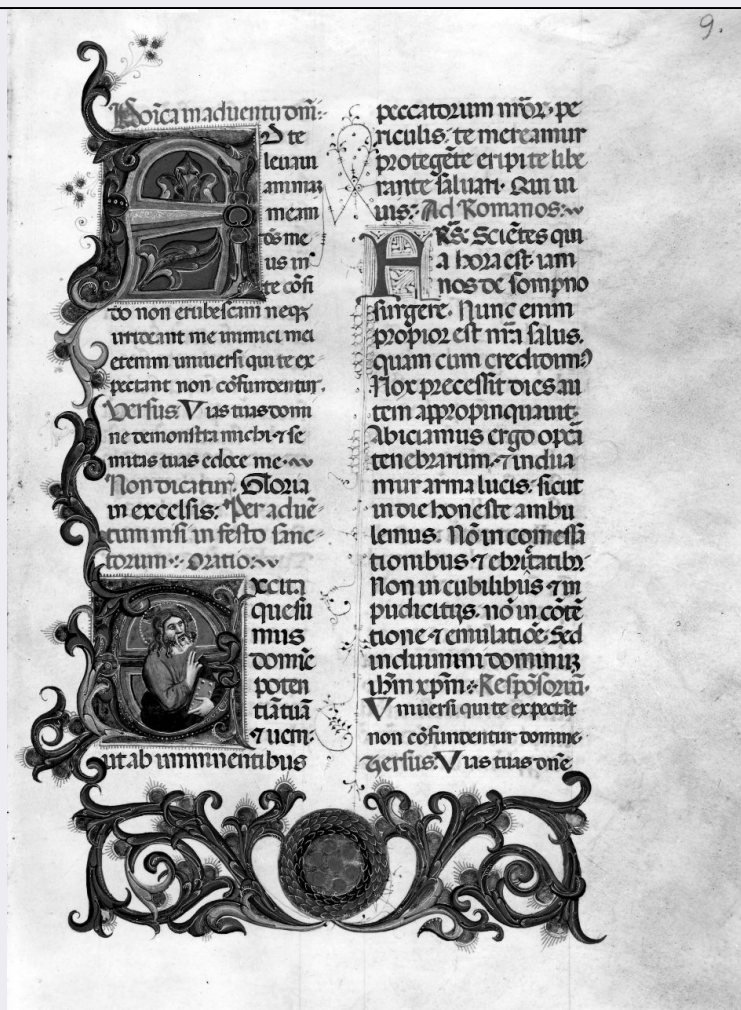 9.
Doi͞ca in adventu dom͞:
AD te
levavi
animaz
meam
d͞s me
us in
te co͞fi
do non erubescam neqz
irrideant me inimici mei
etenim universi qui te ex
pectant non co͞fundentur.
Versus. Vias tuas domi
ne demonstra michi ⁊ se
mitas tuas edoce me.
Non dicatur. Gloria
in excelsis. Per adue͞
tum nisi in festo sanc
torum. Oratio.
Excita
quesu
mus
domi͞e
poten
tia͞ tua͞
⁊ veni.
ut ab imminentibus
peccatorum nr͞or. pe
riculis. te mereamur
protege͞te eripi te libe
rante saluari. Qui ui
uis. Ad Romanos.
FRS͞. Scie͞tes qui
a hora est iam
nos de sompno
surgere. Nunc enim
propior est nr͞a salus.
quam cum credidim⁹
Nox precessit dies au
tem appropinquauit.
Abiciamus ergo opera
tenebrarum. ⁊ indua
mur arma lucis. sicut
in die honeste ambu
lemus. No͞ in comessa
tionibus ⁊ ebrietatib⁊
Non in cubilibus ⁊ in
pudicitiis. no͞ in co͞te͞
tione ⁊ emulatio͞e. Sed
induimini dominuz
ih͞m xp͞m. Respo͞soriu͞.
Vniuersi qui te expecta͞t
non co͞fundentur domine
Versus. Vias tuas dn͞e